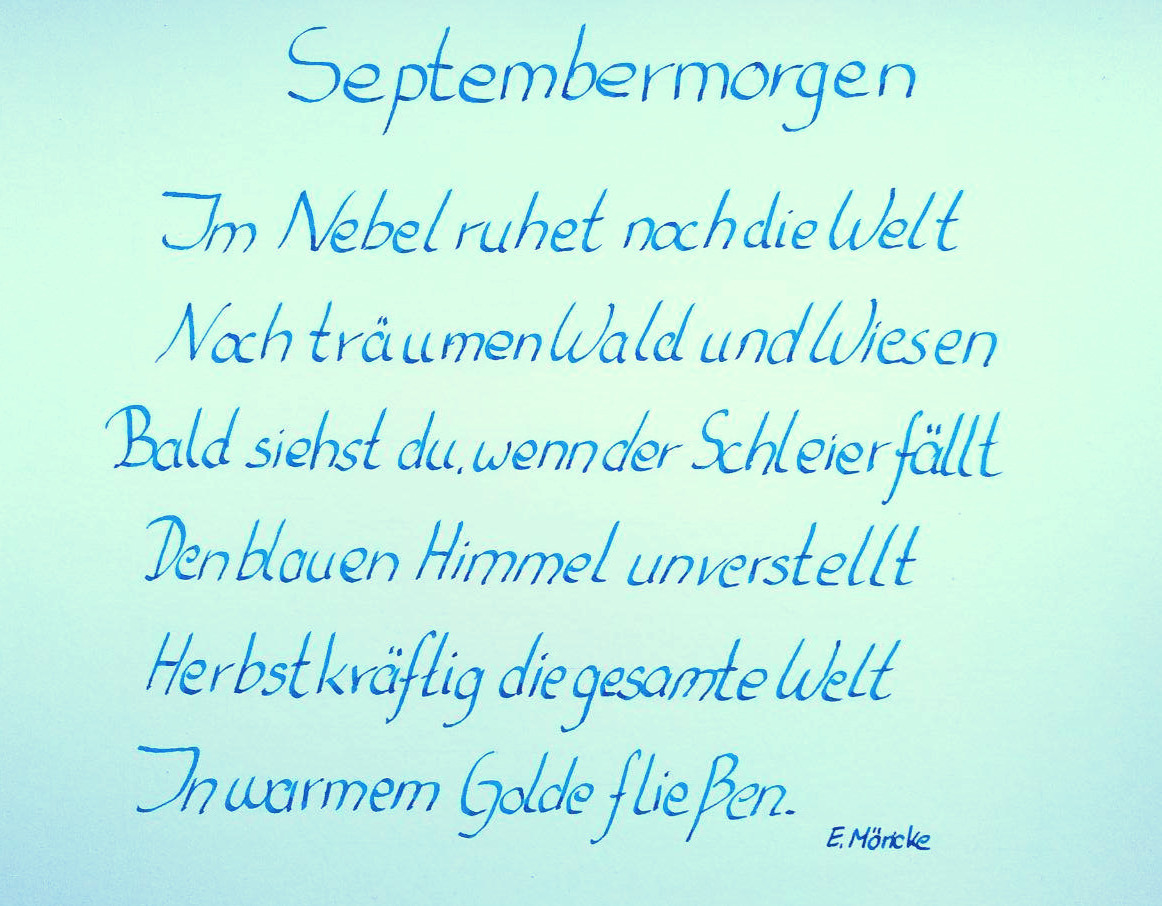 Septembermorgen
Im Nebel ruhet noch die Welt
Noch träumen Wald und Wiesen
Bald siehst du, wenn der Schleier fällt
Den blauen Himmel unverstellt
Herbstkräftig die gesamte Welt
In warmem Golde fließen.
E. Möricke